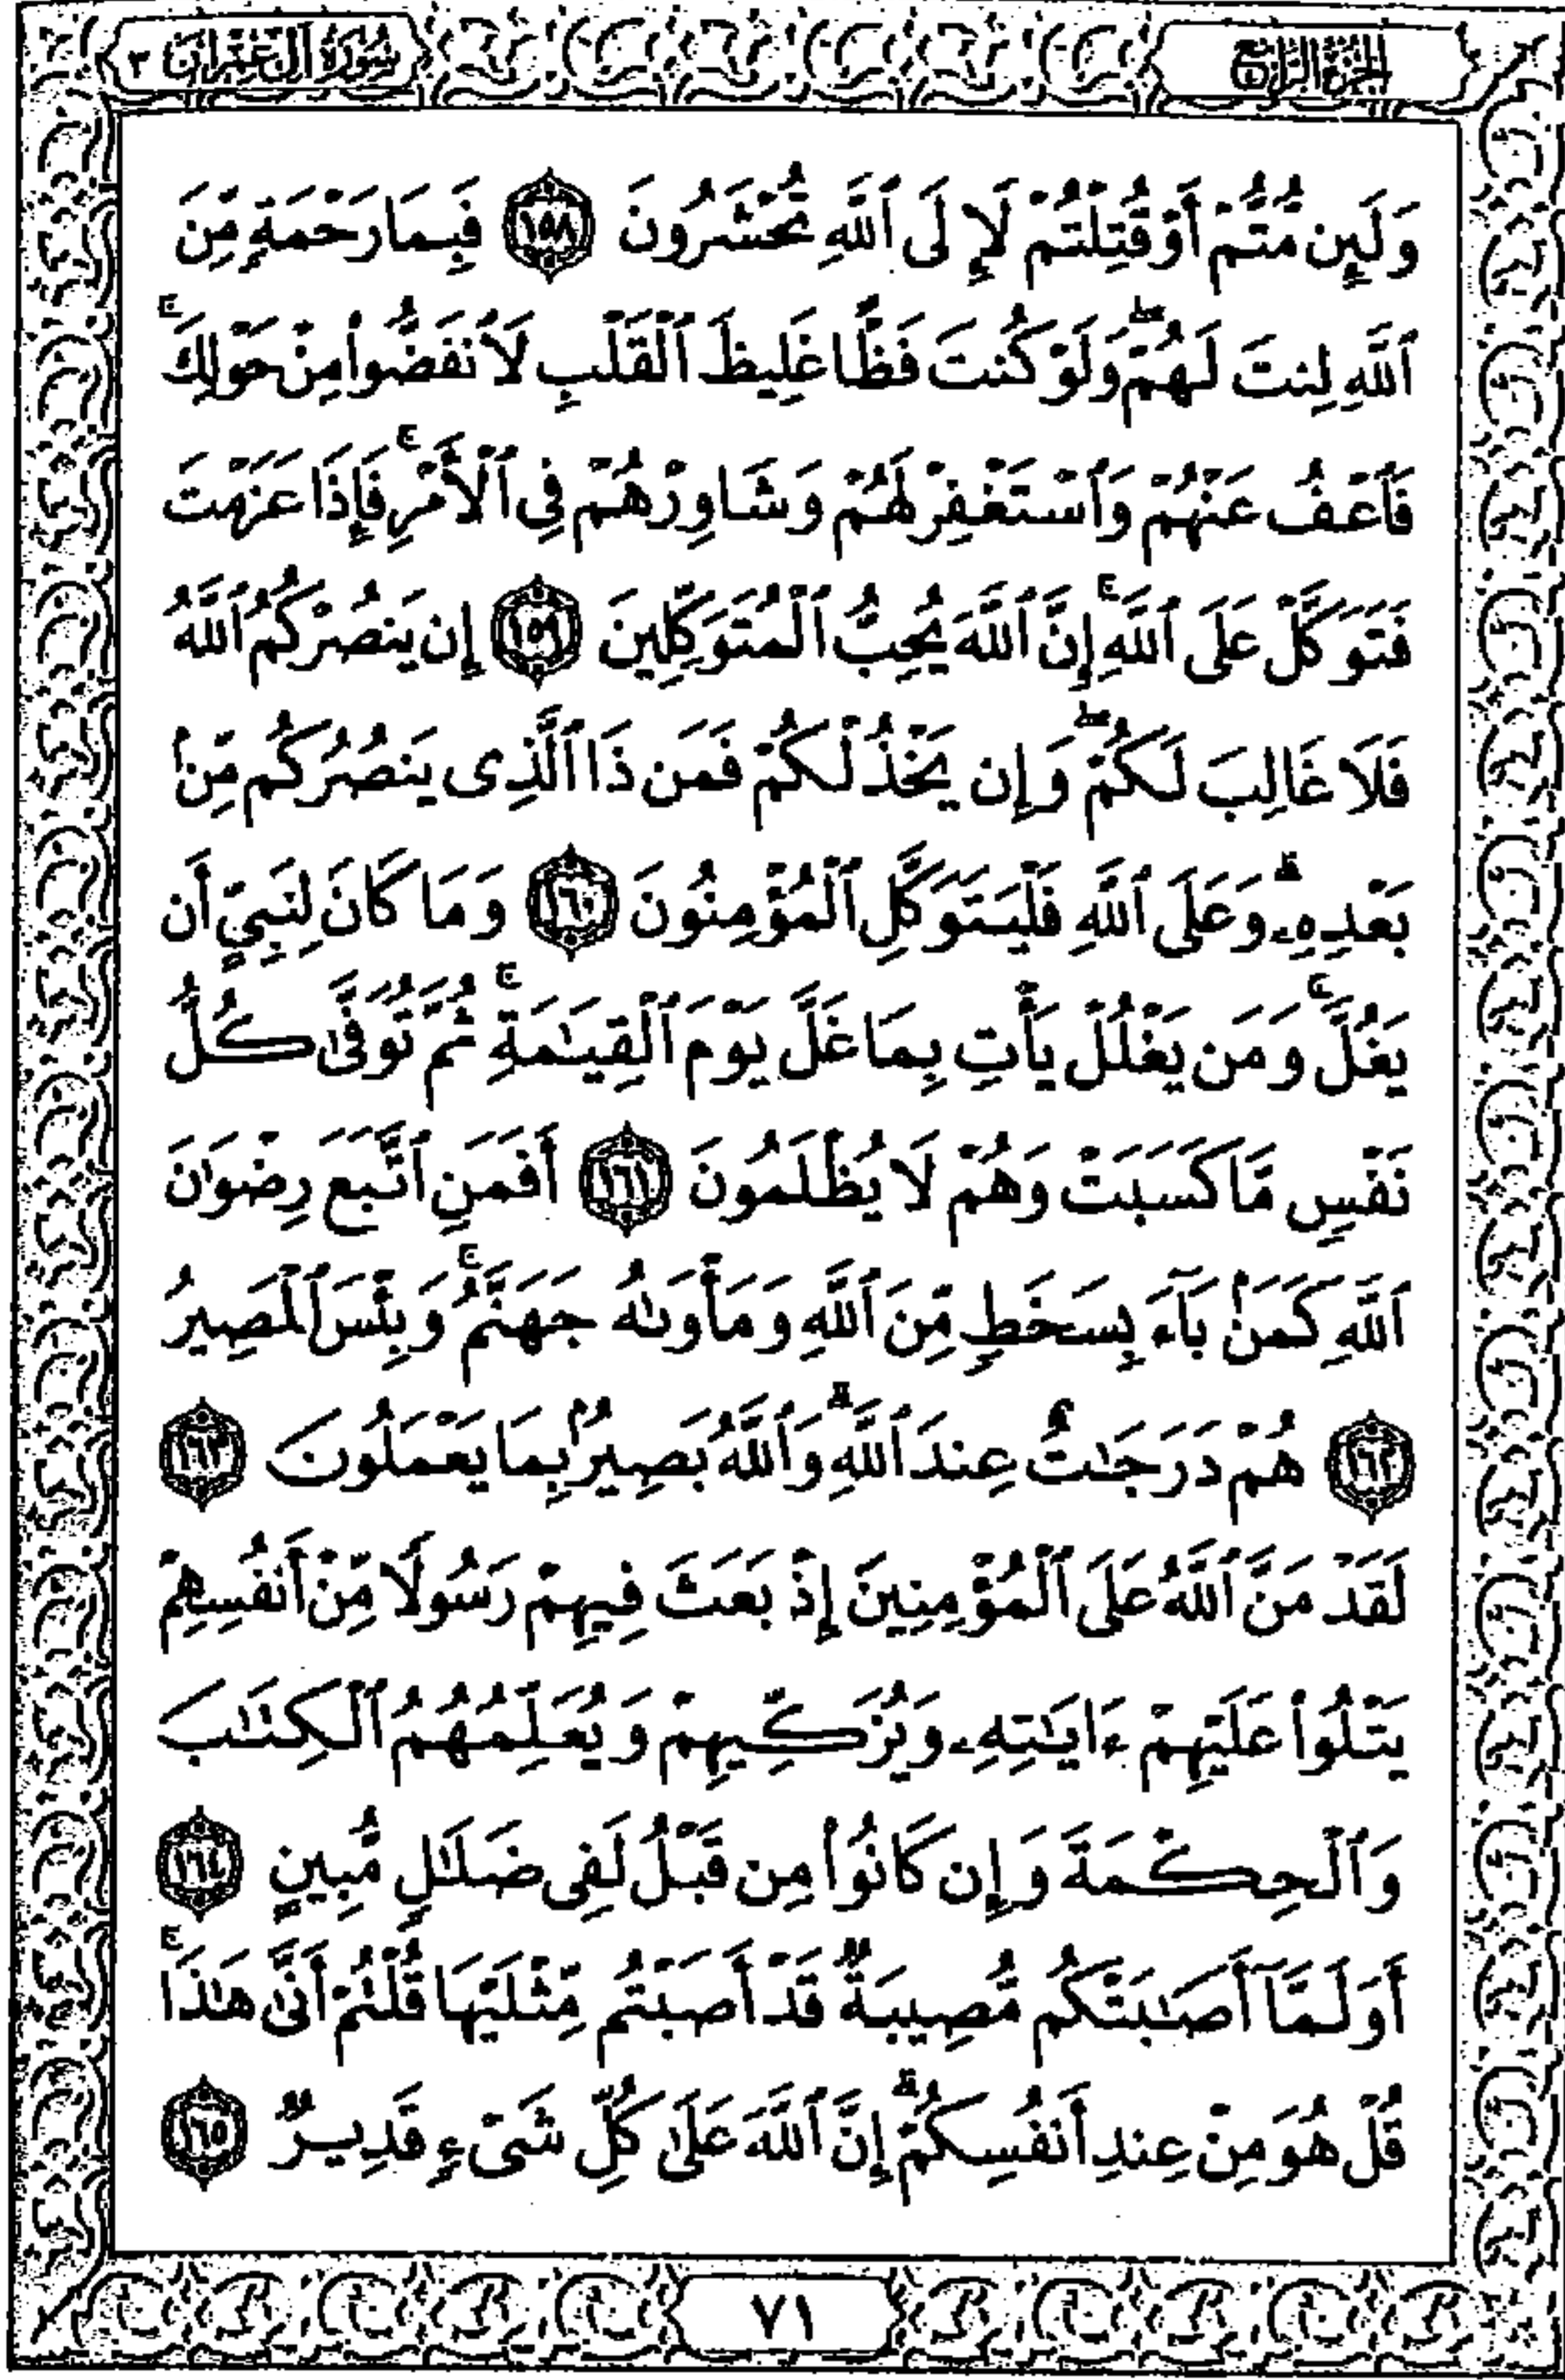 الجزء الرابع
سورة آل عمران ٣
وَلَئِن مُّتُّمْ أَوْ قُتِلْتُمْ لَإِلَى ٱللَّهِ تُحْشَرُونَ ١٥٨ فَبِمَا رَحْمَةٍ مِّنَ
ٱللَّهِ لِنتَ لَهُمْ ۖ وَلَوْ كُنتَ فَظًّا غَلِيظَ ٱلْقَلْبِ لَٱنفَضُّوا۟ مِنْ حَوْلِكَ ۖ
فَٱعْفُ عَنْهُمْ وَٱسْتَغْفِرْ لَهُمْ وَشَاوِرْهُمْ فِى ٱلْأَمْرِ ۖ فَإِذَا عَزَمْتَ
فَتَوَكَّلْ عَلَى ٱللَّهِ ۚ إِنَّ ٱللَّهَ يُحِبُّ ٱلْمُتَوَكِّلِينَ ١٥٩ إِن يَنصُرْكُمُ ٱللَّهُ
فَلَا غَالِبَ لَكُمْ ۖ وَإِن يَخْذُلْكُمْ فَمَن ذَا ٱلَّذِى يَنصُرُكُم مِّنۢ
بَعْدِهِۦ ۗ وَعَلَى ٱللَّهِ فَلْيَتَوَكَّلِ ٱلْمُؤْمِنُونَ ١٦٠ وَمَا كَانَ لِنَبِىٍّ أَن
يَغُلَّ ۚ وَمَن يَغْلُلْ يَأْتِ بِمَا غَلَّ يَوْمَ ٱلْقِيَـٰمَةِ ۚ ثُمَّ تُوَفَّىٰ كُلُّ
نَفْسٍ مَّا كَسَبَتْ وَهُمْ لَا يُظْلَمُونَ ١٦١ أَفَمَنِ ٱتَّبَعَ رِضْوَٰنَ
ٱللَّهِ كَمَنۢ بَآءَ بِسَخَطٍ مِّنَ ٱللَّهِ وَمَأْوَىٰهُ جَهَنَّمُ ۚ وَبِئْسَ ٱلْمَصِيرُ
١٦٢ هُمْ دَرَجَـٰتٌ عِندَ ٱللَّهِ ۗ وَٱللَّهُ بَصِيرٌۢ بِمَا يَعْمَلُونَ ١٦٣
لَقَدْ مَنَّ ٱللَّهُ عَلَى ٱلْمُؤْمِنِينَ إِذْ بَعَثَ فِيهِمْ رَسُولًا مِّنْ أَنفُسِهِمْ
يَتْلُوا۟ عَلَيْهِمْ ءَايَـٰتِهِۦ وَيُزَكِّيهِمْ وَيُعَلِّمُهُمُ ٱلْكِتَـٰبَ
وَٱلْحِكْمَةَ وَإِن كَانُوا۟ مِن قَبْلُ لَفِى ضَلَـٰلٍ مُّبِينٍ ١٦٤
أَوَلَمَّآ أَصَـٰبَتْكُم مُّصِيبَةٌ قَدْ أَصَبْتُم مِّثْلَيْهَا قُلْتُمْ أَنَّىٰ هَـٰذَا ۖ
قُلْ هُوَ مِنْ عِندِ أَنفُسِكُمْ ۗ إِنَّ ٱللَّهَ عَلَىٰ كُلِّ شَىْءٍ قَدِيرٌ ١٦٥
٧١